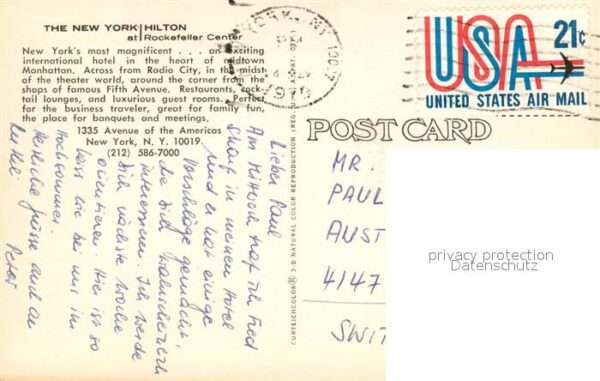 THE NEW YORK HILTON
at Rockefeller Center
New York's most magnificent . . . an exciting
international hotel in the heart of midtown
Manhattan. Across from Radio City, in the midst
of the theater world, around the corner from the
shops of famous Fifth Avenue. Restaurants, cock-
tail lounges, and luxurious guest rooms. Perfect
for the business traveler, great for family fun,
the place for banquets and meetings.
1335 Avenue of the Americas
New York, N. Y. 10019
(212) 586-7000
Lieber Paul
Am Mittwoch traf ich Fred
in meinem Hotel
und er hat einige
Vorschläge gemacht,
die Dich wahrscheinlich
interessieren. Ich werde
Dich nächste Woche
orientieren. Hier ist es so
heiss wie bei uns im
Hochsommer.
Herzliche Grüsse auch an
Peter
CURTEICHCOLOR® 3-D NATURAL COLOR REPRODUCTION
POST CARD
USA 21¢
UNITED STATES AIR MAIL
MR.
PAUL
AUST
4147
SWIT
privacy protection
Datenschutz